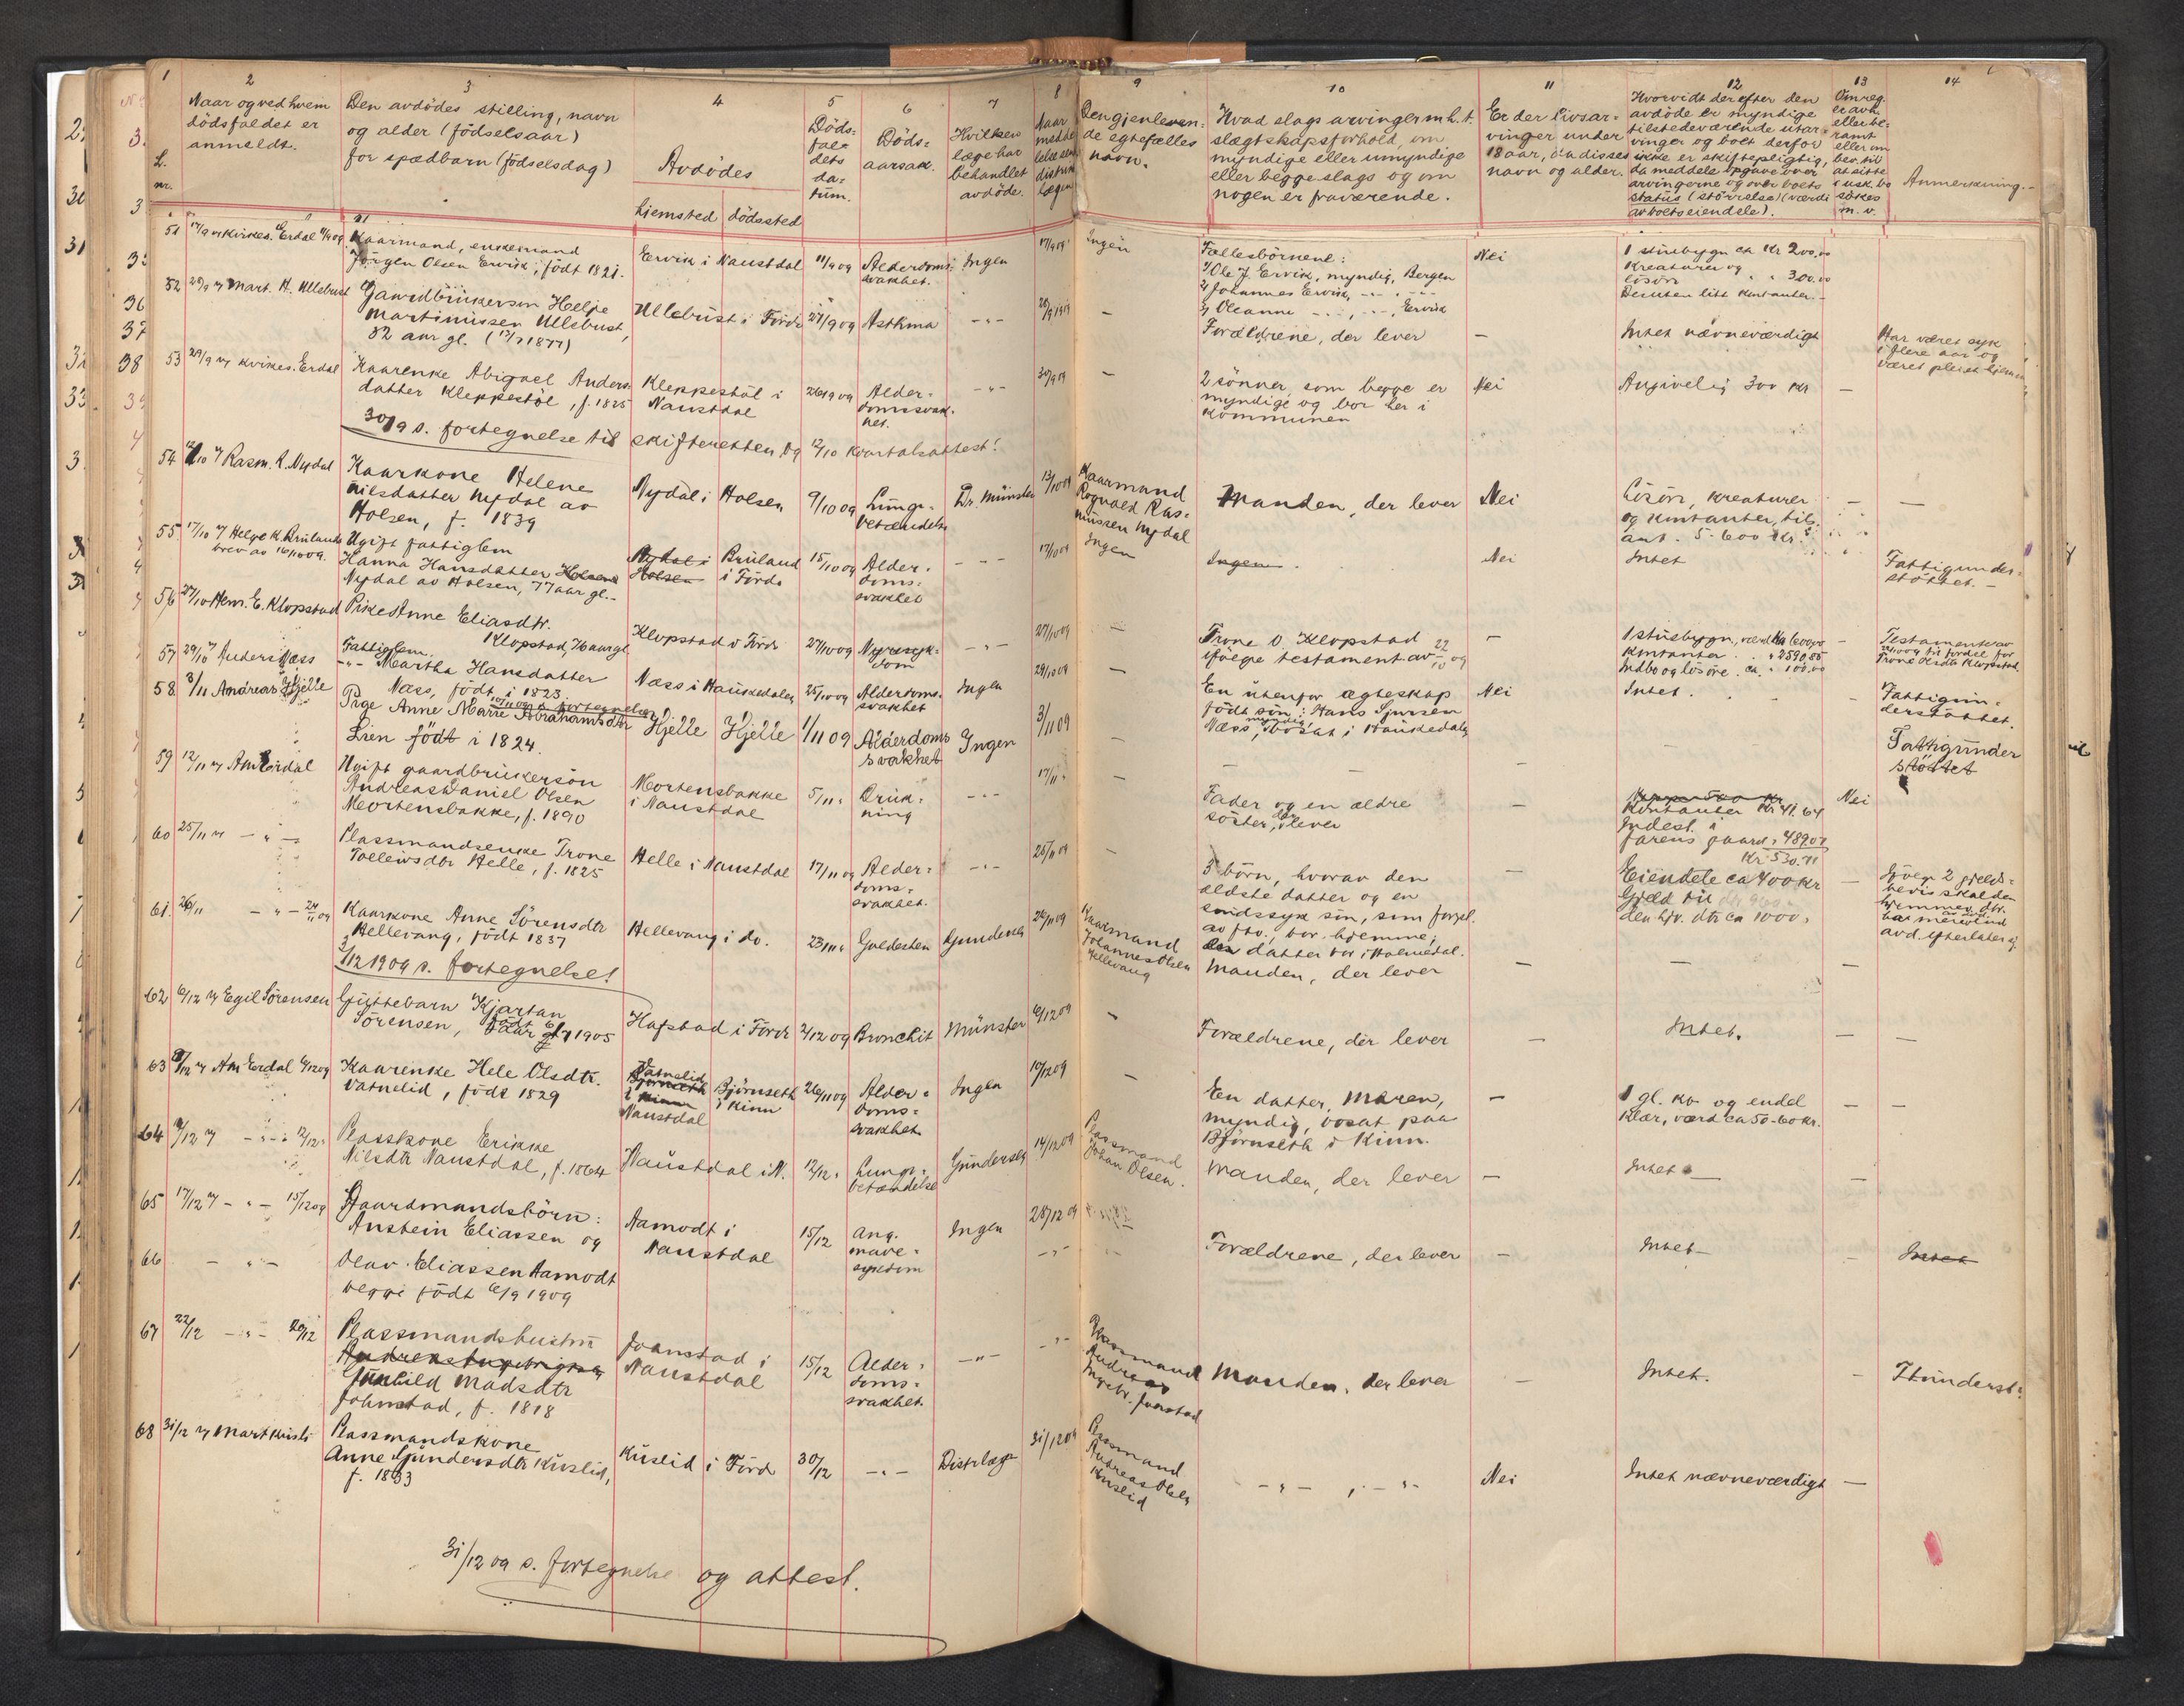 1
2
3
4
5
6
7
8
9
10
11
12
13
14
L. nr.
Naar og ved hvem
dödsfaldet er
anmeldt.
Den avdödes stilling, navn
og alder (födselsaar)
for spædbarn (födselsdag)
Avdödes
hjemsted dödssted
Döds-
fal-
dets
da-
tum.
Döds-
aarsak.
Hvilken
læge har
behandlet
avdöde.
Den gjenleven-
de egtefælles
navn.
Hvad slags arvinger m.h.t.
slægtskapsforhold, om
myndige eller umyndige
eller begge slags og om
nogen er fraværende.
Er der livsar-
vinger under
18 aar, da disses
navn og alder.
Hvorvidt der efter den
avdöde er myndige
tilstedeværende utar-
vinger og boet derfor
ikke er skiftepligtig,
da meddels opgave over
arvingerne og over boets
status (störrelse) (værdi
av boets eiendele).
Anmerkning.
51 17/9 v kirkes. Erdal
Kaarmand, enkemand
Jörgen Olsen Ervik, födt 1821.
Ervik i Naustdal
11/9 09
Alderdoms-
svakhet.
Ingen
17/9 09
Ingen
Fællesbörnene:
1/ Ole J. Ervik, myndig, Bergen
2/ Johannes Ervik, -"- , -"-
3/ Oleanne -"- , -"- , Ervik
Nei
1 stuebygn ca Kr 200.00
Kreaturer og
lösöre " " 300.00
Desuten litt kontanter.-
52 28/9 v Mart. H. Ullebust
Gaardbrukersön Helge
Martinussen Ullebust,
32 aar gl. (12/7 1877)
Ullebust i Förde
27/9 09
Asthma
-"-
28/9 1909
-
Forældrene, der lever
-
Intet nævneværdigt
Har været syk
i flere aar og
været pleiet hjemme
53 29/9 v kirkes. Erdal
Kaarenke Abigael Anders-
datter Kleppestöl, f. 1825
Kleppestöl i
Naustdal
26/9 09
Alder-
domssvak-
het.
-"-
30/9 09
-
2 sönner, som begge er
myndige og bor her i
kommunen
Nei
Angivelig 300 kr
-
30/9 s. fortegnelse til skifteretten og 12/10 kvartalsattest!
54 12/10 v Rasm. R. Nydal
Kaarkone Helene
Nilsdatter Nydal av
Holsen, f. 1839
Nydal i Holsen
9/10 09
Lunge-
betændelse
Dr. Münster
13/10 09
Kaarmand
Rognald Ras-
mussen Nydal
Manden, der lever
Nei
Lösöre, kreaturer
og kontanter, til-
ans. 5-600 Kr.
-
-
55 17/10 v Helge K. Bruland
brev av 16/10 09.
Ugift fattiglem
Hanna Hansdatter Holsen
Nydal av Holsen, 77 aar gl.-
Nydal i
Holsen
Bruland
i Förde
15/10 09
Alder-
doms-
svakhet
-"-
17/10 09
Ingen
Ingen
Nei
Intet
Fattigunder-
støttet.-
56 27/10 Hem. E. Klopstad
Pike Anne Eliasdtr.
Klopstad,
Klopstad i Förde
27/10 09
Nyresyk-
dom
-"-
27/10 09
-
Trone O. Klopstad
ifölge testament av 22/10 09
-
1 stuebygn, værd Ka 600,00
kontanter " 2590,85
Indbo og lösöre ca " 100.00
Testamente av
til fordel for
57 29/10 v Anders Næss
Fattiglem
-"- Martha Hansdatter
Næss, födt i 1823.
Næss i Haukedalen
25/10 09
Alderdoms-
svakhet
Ingen
29/10 09
-
En utenfor ægteskap
födt sön: Hans Sjursen
Næss, myndig, bosat i Haukedalen
Nei
Intet.
-
Fattigun-
derstöttet.
58 3/11 Andreas Hjelle
Pige Anne Marie Abrahamsdtr
Lien födt i 1824.
Hjelle
Hjelle
1/11 09
Alderdoms
svakhet
Ingen
3/11 09
-
-
-
Fattigunder
støttet
59 12/11 v Am Erdal
Ugift gaardbrukersön
Andreas Daniel Olsen
Mortensbakke, f. 1890
Mortensbakke
i Naustdal
5/11 "
Druk-
ning
-"-
17/11 "
-
Fader og en ældre
söster, der lever
-
Kontanter Kr 41.64
Indest. i
farens gaard " 489.07
Kr 530.71
Nei
60 25/11 v -"-
Plassmandsenke Trone
Tolleivsdtr Helle, f. 1825
Helle i Naustdal
17/11 09
Alder-
doms-
svakhet.
-"-
25/11 09
-
3 börn, hvorav den
ældste datter og en
sindssyk sön, som forpl.
av ftv., bor hjemme;
en datter bor i Holmedal.
-
Eiendele ca 400 kr
Gjeld til
den hjv. dtr ca 1000,
-
Ifölge 2 gjelds-
bevis skal den
hjemmev. dtr.
61. 26/11 -"- 24/11 09
Kaarkone Anne Sörensdtr
Hellevang, födt 1837
Hellevang i do.
23/11 "
Galdesten
Gundersen
26/11 09
Kaarmand
Johannes Olsen
Hellevang
Manden, der lever
-
-
-
3/12 1909 s. fortegnelse!
62 6/12 v Egil Sörensen
Guttebarn Kjartan
Sörensen, 1905
Hafstad i Förde
2/12 09
Bronchit
Münster
6/12 09
-
Forældrene, der lever
-
Intet.
-
-
63 9/12 v Am Erdal 6/12 09
Kaarenke Hele Olsdtr.
Vatnelid, födt 1829
Vatnelid
Björnseth
i Kinn
Naustdal
Björnseth
i Kinn
26/11 09
Alder-
doms-
svakhet
Ingen
10/12 09
-
En datter, Maren,
myndig, bosat paa
Björnseth i Kinn.
-
1 gl. ko og endel
klær, værd ca 50-60 kr.
-
-
64 -"- 12/12 "
Plasskone Erikke
Nilsdtr Naustdal, f. 1864
Naustdal i N.
12/12 "
Lunge-
betændelse
Gundersen
14/12 09
Plassmand
Johan Olsen.
Manden, der lever
-
Intet
-
65 17/12 v -"- 15/12 09
Gaardmandsbörn:
Anstein Eliassen og
Aamodt i
Naustdal
15/12
Ang.
mave-
sykdom
Ingen
28/12 09
66 -"-
Olav Eliassen Aamodt
begge födt 6/9 1909
-"-
Forældrene, der lever
-
Intet-
-
Intet
67 22/12 -"- 20/12
Plassmandshustru
Gunhild Madsdtr
Johnstad, f. 1818
Joanstad i
Naustdal
15/12
Alder-
doms-
svakhet.
-"-
-"-
Plassmand
Andreas
Ingebr. Joanstad
Manden, der lever
-
Intet.
-
Ftunderst.
68 31/12 v Mart Kuslid
Plassmandskone
Anne Gundersdtr Kuslid,
f. 1833
Kuslid i Förde
30/12
-"-
Distr.læge
31/12 09
Plassmand
Andreas Olsen
Kuslid
-"- , -"-
Nei
Intet nævneværdigt
-
31/12 09 s. fortegnelse og attest.